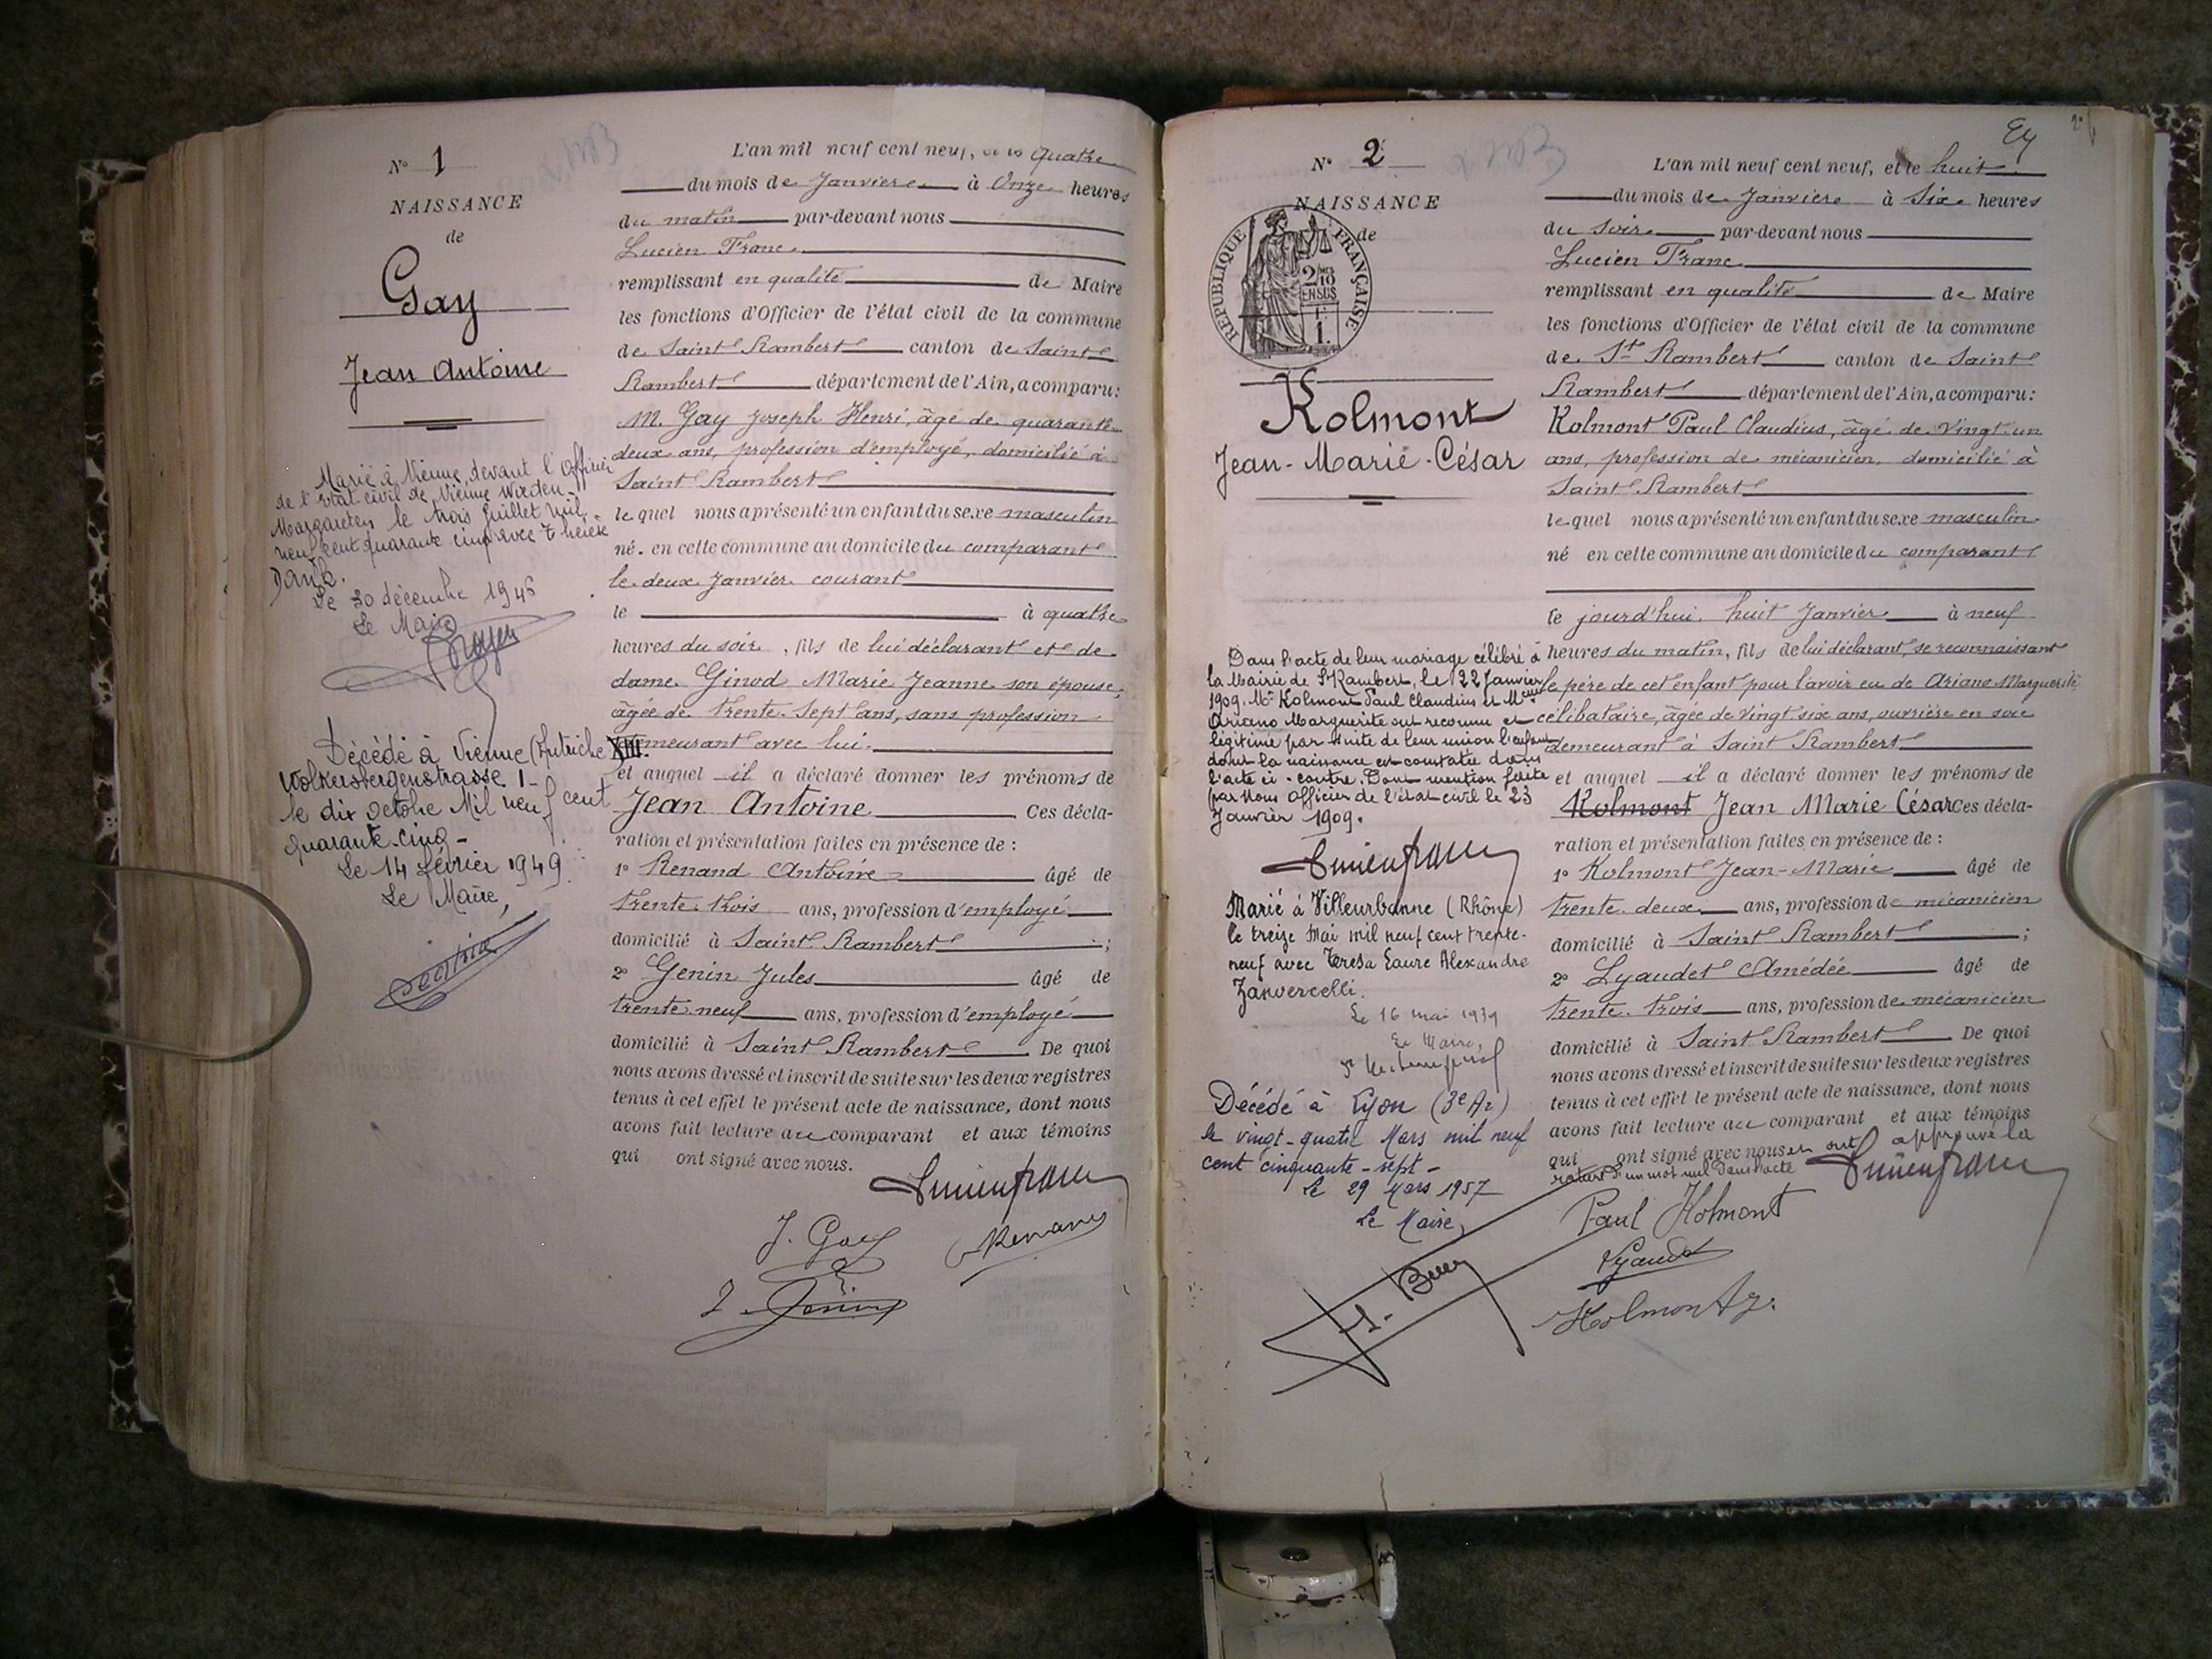 N° 1
NAISSANCE
de
Gay
Jean Antoine
Marié à Vienne, devant l'Officier
de l'Etat civil de Vienne Wieden-
Margareten le trois Juillet mil
neuf cent quarante cinq avec
Le 30 décembre 1946
Le Maire
Décédé à Vienne (Autriche) XIII.
Wolkersbergenstrasse 1-
le dix octobre Mil neuf cent
quarante-cinq -
Le 14 février 1949
Le Maire,
L'an mil neuf cent neuf, et le quatre
du mois de Janvier à Onze heures
du matin par-devant nous
Lucien Franc
remplissant en qualité de Maire
les fonctions d'Officier de l'état civil de la commune
de Saint Rambert canton de Saint
Rambert département de l'Ain, a comparu:
M. Gay Joseph Henri, âgé de quarante
deux ans, profession d'employé, domicilié à
Saint Rambert
lequel nous a présenté un enfant du sexe masculin
né en cette commune au domicile du comparant
le deux Janvier courant
le à quatre
heures du soir, fils de lui déclarant et de
dame Ginod Marie Jeanne son épouse,
âgée de trente-sept ans, sans profession
demeurant avec lui.
et auquel il a déclaré donner les prénoms de
Jean Antoine Ces décla-
ration et présentation faites en présence de :
1° Renand Antoine âgé de
trente-trois ans, profession d'employé
domicilié à Saint Rambert ;
2° Genin Jules âgé de
trente neuf ans, profession d'employé
domicilié à Saint Rambert De quoi
nous avons dressé et inscrit de suite sur les deux registres
tenus à cet effet le présent acte de naissance, dont nous
avons fait lecture au comparant et aux témoins
qui ont signé avec nous.
Lucien Franc
J. Gay
Renand
J. Genin
24
N° 2
NAISSANCE
de
RÉPUBLIQUE FRANÇAISE
2/10 EN SUS
Kolmont
Jean-Marie-César
Dans l'acte de leur mariage célébré à
la Mairie de St Rambert, le 22 Janvier
1909. Mr Kolmont Paul Claudius et Melle
Ariano Marguerite ont reconnu et
légitimé par suite de leur union l'enfant
dont la naissance est constatée dans
l'acte ci-contre. Dont mention faite
par Nous Officier de l'état civil le 23
Janvier 1909.
Lucien Franc
Marié à Villeurbanne (Rhône)
le treize Mai mil neuf cent trente-
neuf avec Teresa Laure Alexandre
Zanvercelli.
Le 16 mai 1939
Le Maire,
Décédé à Lyon (3e Ar)
le vingt-quatre Mars mil neuf
cent cinquante-sept-
Le 29 Mars 1957
Le Maire,
L'an mil neuf cent neuf, et le huit
du mois de Janvier à Six heures
du soir par-devant nous
Lucien Franc
remplissant en qualité de Maire
les fonctions d'Officier de l'état civil de la commune
de St Rambert canton de Saint
Rambert département de l'Ain, a comparu:
Kolmont Paul Claudius, âgé de vingt-un
ans, profession de mécanicien, domicilié à
Saint Rambert
lequel nous a présenté un enfant du sexe masculin
né en cette commune au domicile du comparant
le jourd'hui huit Janvier à neuf
heures du matin, fils de lui déclarant, se reconnaissant
le père de cet enfant pour l'avoir eu de Ariano Marguerite,
célibataire, âgée de vingt six ans, ouvrière en soie
demeurant à Saint Rambert
et auquel il a déclaré donner les prénoms de
Kolmont Jean Marie César Ces décla-
ration et présentation faites en présence de :
1° Kolmont Jean-Marie âgé de
trente-deux ans, profession de mécanicien
domicilié à Saint Rambert ;
2° Lyaudet Amédée âgé de
trente-trois ans, profession de mécanicien
domicilié à Saint Rambert De quoi
nous avons dressé et inscrit de suite sur les deux registres
tenus à cet effet le présent acte de naissance, dont nous
avons fait lecture au comparant et aux témoins
qui ont signé avec nous et ont approuvé la
rature d'un mot nul dans l'acte
Lucien Franc
Paul Kolmont
Lyaudet
Kolmont J.